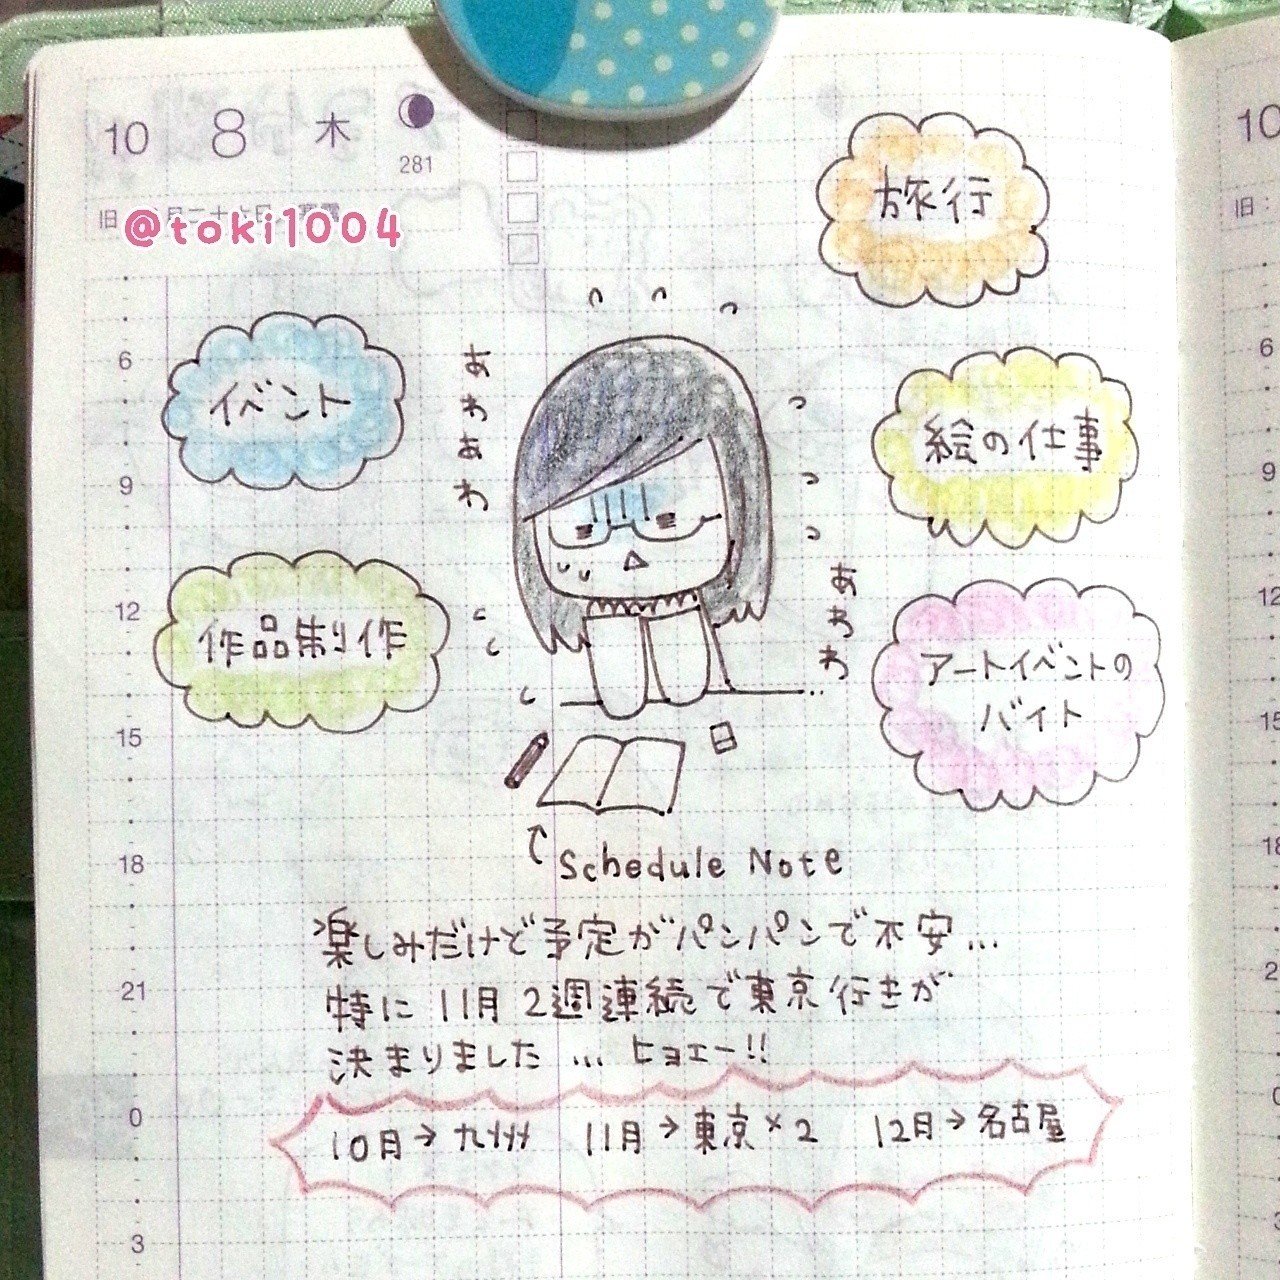 10 8 木
281
旧
@toki1004
旅行
イベント
あわあわ
絵の仕事
作品制作
あわわ
アートイベントの
バイト
Schedule Note
楽しみだけど予定がパンパンで不安...
特に11月2週連続で東京行きが
決まりました...ヒョエー!!
10月→九州 11月→東京×2 12月→名古屋
6
9
12
15
18
21
0
3
10
旧:
6
9
12
15
18
2
0
3